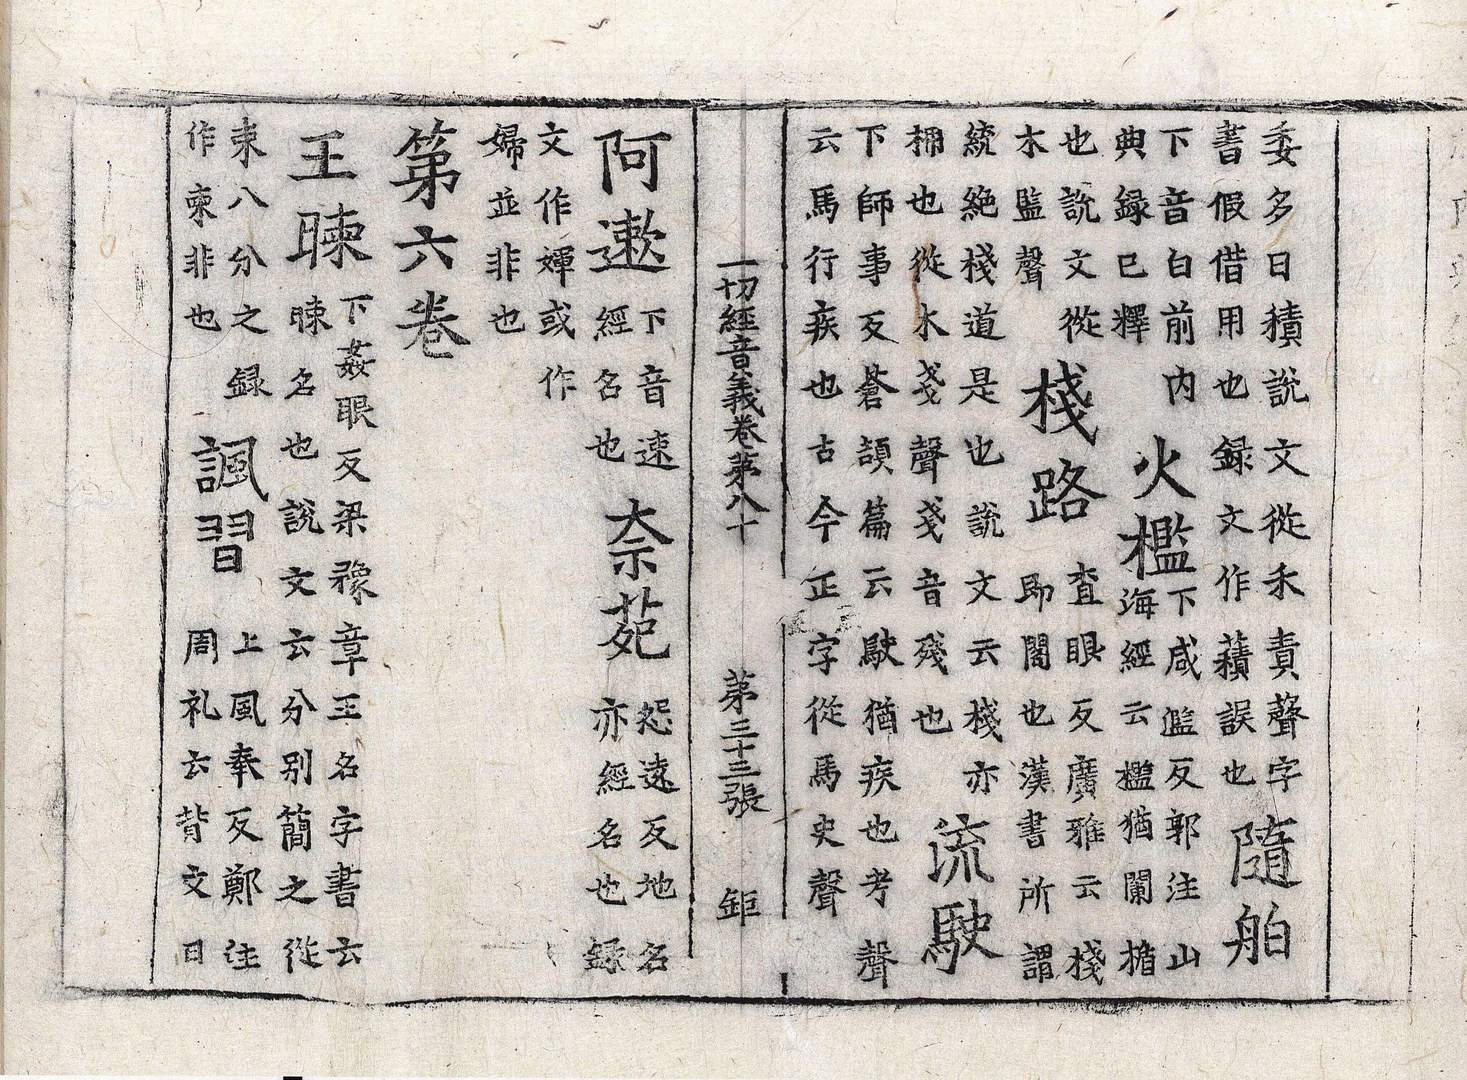 委多日積說文從禾責聲字
書假借用也録文作蘱誤也
隨舶
下音白前內
典録已釋
火檻
下咸濫反郭注山
海經云檻猶闌楯
也說文從
木監聲
棧路
查眼反廣雅云棧
即閣也漢書所謂
綂絶棧道是也說文云棧棧亦
栅也從木戔聲戔音殘也
流駛
下師事反蒼頡篇云駛猶疾也考聲
云馬行疾也古今正字從馬史聲
一切經音義卷苐八十
苐三十三張
鉅
阿遬
下音速
經名也
柰苑
怨遠反地名
亦經名也録
文作媈或作
婦並非也
第六卷
王暕
下姦眼反梁豫章王名字書云
暕名也說文云分別簡之從
束八分之録
作柬非也
諷習
上風奉反鄭注
周礼云背文曰